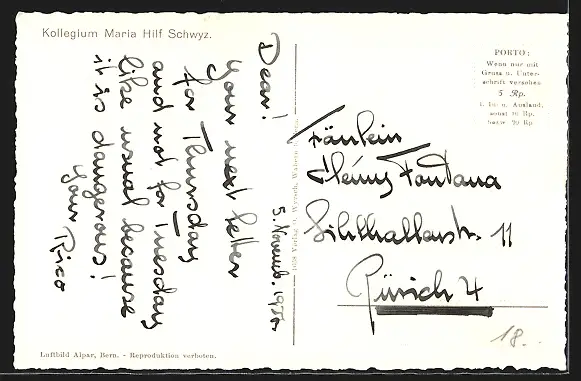 Kollegium Maria Hilf Schwyz.
Dear!
Your next letter
for Thursday
and not for Tuesday
like usual because
it is dangerous!
Your Rico
5. Novemb. 1955
PORTO:
Wenn nur mit
Gruss u. Unter-
schrift versehen
5 Rp.
i. In- u. Ausland,
sonst 10 Rp.
bezw. 20 Rp.
Fräulein
Henny Fontana
Sihlhallenstr. 11
Zürich 4
18.-
Verlag O. Wyrsch, Wabern b.
Luftbild Alpar, Bern. - Reproduktion verboten.